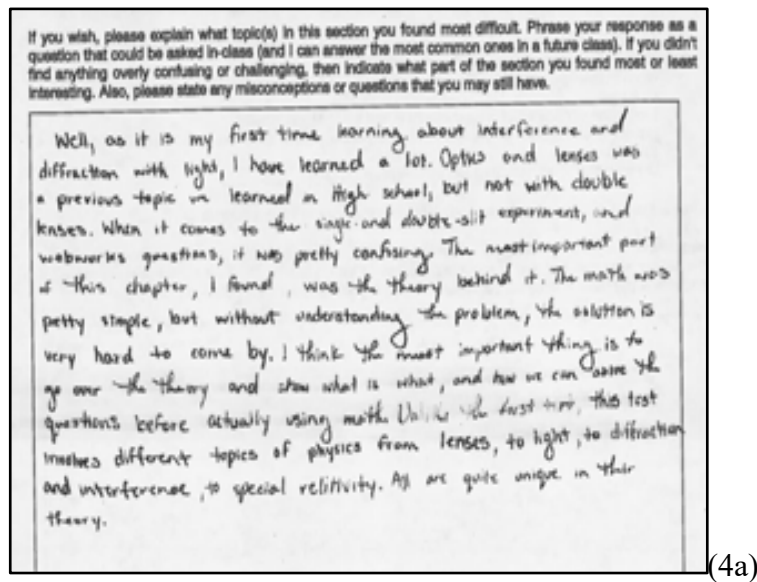 If you wish, please explain what topic(s) in this section you found most difficult. Phrase your response as a
question that could be asked in-class (and I can answer the most common ones in a future class). If you didn't
find anything overly confusing or challenging, then indicate what part of the section you found most or least
interesting. Also, please state any misconceptions or questions that you may still have.
Well, as it is my first time learning about interference and
diffraction with light, I have learned a lot. Optics and lenses was
a previous topic we learned in High school, but not with double
lenses. When it comes to the single and double-slit experiment, and
webworks questions, it was pretty confising. The most important part
of this chapter, I found, was the theory behind it. The math was
petty simple, but without understanding the problem, the solution is
very hard to come by. I think the most important thing is to
go over the theory and show what is what, and how we can solve the
questions before actually using math. Unlike the first time, this test
involves different topics of physics from lenses, to light, to diffraction
and interference, to special relitivity. All are quite unique in their
theory.
(4a)